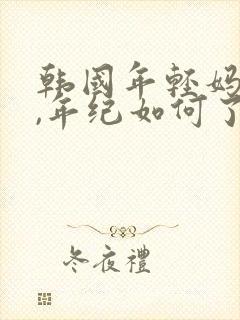 韩国年轻妈
,年纪如何了
冬夜禮